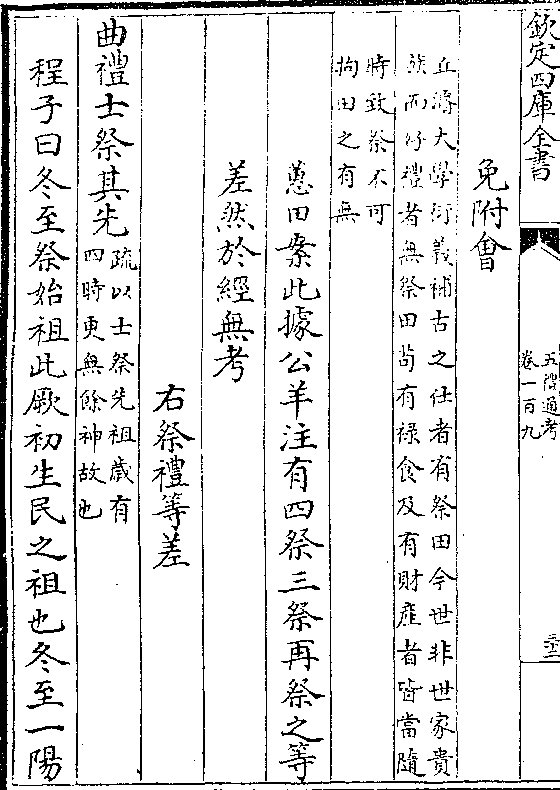 欽定四庫全書
五禮通考
卷一百九
三十二
免附會
丘濬大學衍義補古之仕者有祭田今世非世家貴
族而好禮者無祭田苟有祿食及有財產者皆當隨
時致祭不可
拘田之有無
蕙田案此據公羊注有四祭三祭再祭之等
差然於經無考
右祭禮等差
曲禮士祭其先
疏以士祭先祖歲有
四時更無餘神故也
程子曰冬至祭始祖此厥初生民之祖也冬至一陽